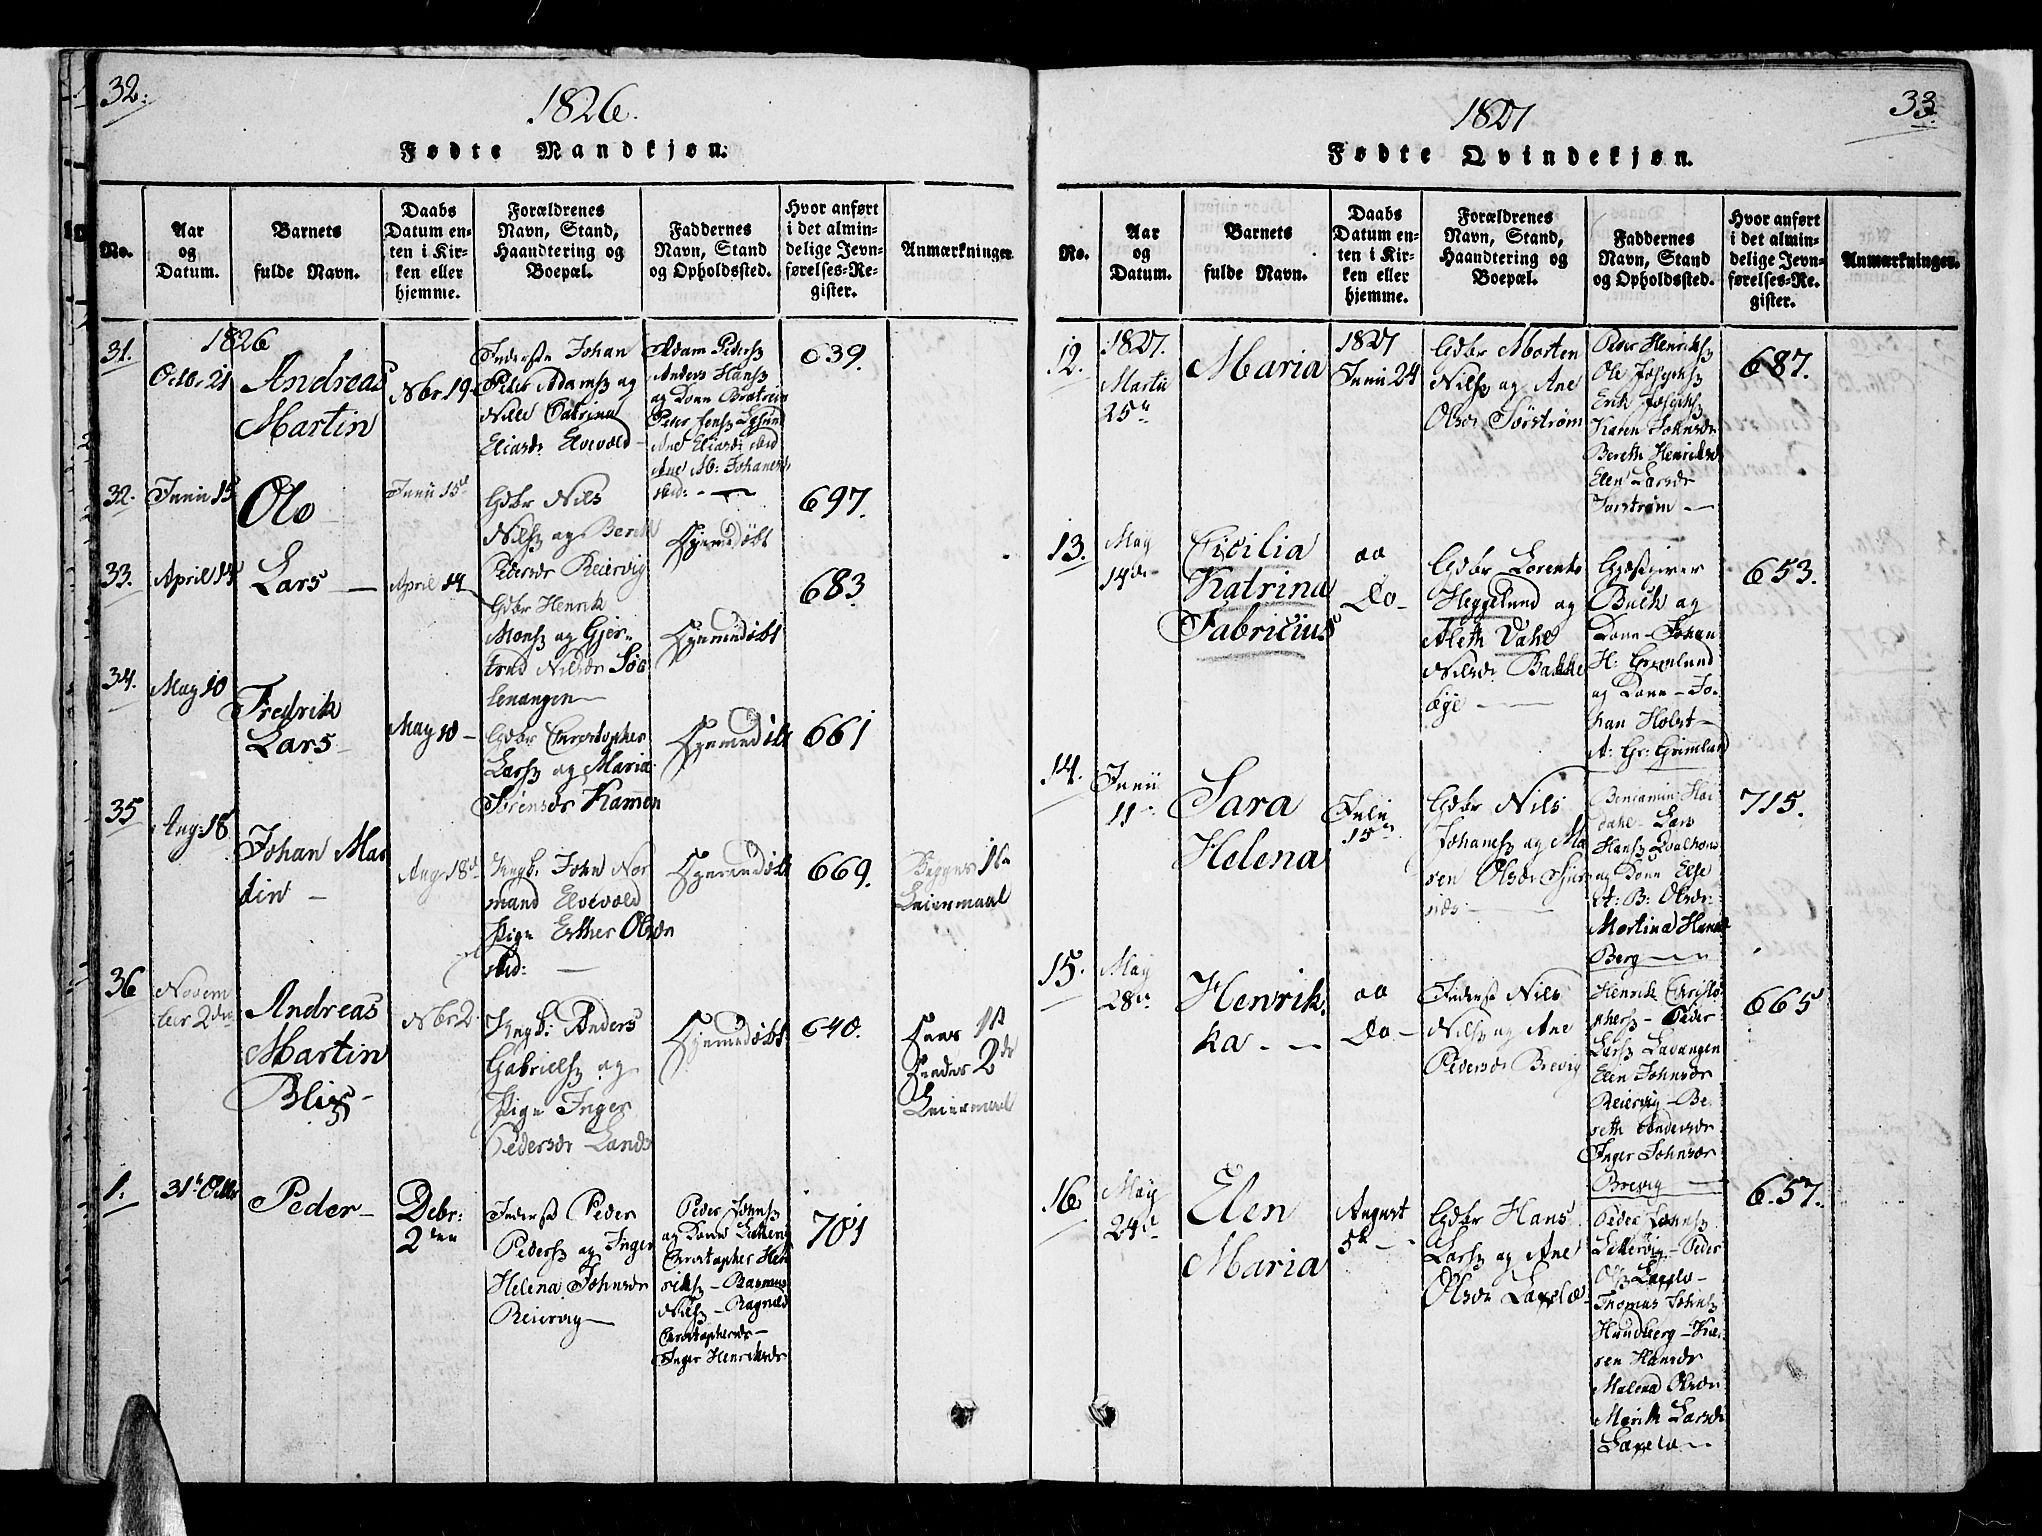 32.
1826.
Fødte Mandkjøn.
No.
Aar
og
Datum.
Barnets
fulde Navn.
Daabs
Datum en-
ten i Kir-
ken eller
hjemme.
Forældrenes
Navn, Stand,
Haandtering og
Boepæl.
Faddernes
Navn, Stand
og Opholdssted.
Hvor anført
i det almin-
delige Jevn-
førelses-Re-
gister.
Anmærkninger.
31.
1826
Octbr 21
Andreas
Martin
Nbr 19
Inderst Johan
Peter Adams og
Nille Catrina
Eliasdr Elvevold
Adam Peders
Anders Hans
og Kone
Peter Jens
Ane Eliasdr ibid
Ane M: Johans
ibid: —
639.
32.
Junii 15
Ole
Junii 15d
Gdbr Nils
Nils og Berit
Pedersdr Reiervig
Hjemedøbt
697.
33.
April 14
Lars —
April 14
Gdbr Henrik
Mons og Gjer-
trud Nilsdr Sør
Lenangen —
Hjemedøbt
683.
34.
May 10
Fredrik
Lars —
May 10 —
Gdbr Christopher
Lars og Maria
Sørensdr Kammen
Hjemedøbt
661
35
Aug: 18
Johan Mar
tin —
Aug 18d
Ungk. John Nor
mand Elvevold
Pige Esther Olsdr
ibid: —
Hjemedøbt
669.
Begges 1ste
Leiermaal
36
Novem
ber 2den
Andreas
Martin
Blix —
Nbr 2
Ungk: Anders
Gabriels og
Pige Inger
Pedersdr
Hjemedøbt
640.
Hans 1st
Hendes 2de
Leiermaal
1.
31te Octbr
Peder —
Debr:
2den
Inderst Peder
Peders og Inger
Helena Johnsdr
Reiervig —
Peder Johns
og Kone
Christopher Hen
riks — Rasmus
Nils — Ragnild
Christophersdr —
Inger Henriksdr
701
33.
1827
Fødte Qvindekjøn.
No.
Aar
og
Datum.
Barnets
fulde Navn.
Daabs
Datum en-
ten i Kir-
ken eller
hjemme.
Forældrenes
Navn, Stand,
Haandtering og
Boepæl.
Faddernes
Navn, Stand
og Opholdssted.
Hvor anført
i det almin-
delige Jevn-
førelses-Re-
gister.
Anmærkninger.
12.
1827.
Martii
25de
Maria
1827
Junii 24
Gdbr Morten
Nils og Ane
Olsdr Sørstrøm
Peder Henriks
Ole Josephs
Erik Josephs
Karen Johnsdr
Bereth Henriksdr
Elen Larsdr
Sørstrøm —
687.
13.
May
14de
Cicilia
Katrina
Fabricius
aa
Do —
Gdbr Lorents
Heggelund og
Aleth Dahl
Nilsdr Bakke
bye —
Gjestgiver
Buch og
Kone — Johan
H: Grønlund
og Kone — Jo-
han Holst —
A: Gr: Grimlund
653.
14.
Junii
11
Sara
Helena
Julii
15de
Gdbr Nils
Johans og Ma
ren Olsdr
næs —
Benjamin
dahl — Lars
Hans
og Kone Else
B: Olsdr:
Martina Hansdr
Berg —
715.
15.
May
28de
Henrik-
ka — —
aa
Do —
Inderst Nils
Nils og Ane
Pedersdr Brevig
Henrik Christo
phers — Peder
Lars Lavangen
Elen Johnsdr
Reiervig — Be
reth Andersdr
Inger Johnsdr
Brevig —
665
16.
May
24de
Elen
Maria
August
5te —
Gdbr Hans
Lars og Ane
Olsdr Laxelv
Peder Johns
— Peder
Ols Laxelv —
Thomas Johns
Hundberg — Ka
ren Hansdr
Malena Olsdr
Marith Larsdr
Laxelv —
657.